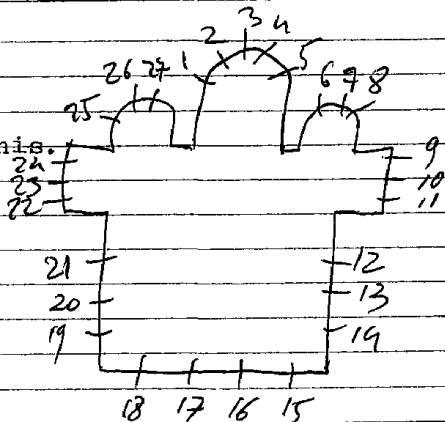 3
2 4
26 27 1 5
25 6 7 8
his.
24 9
23 10
22 11
21 12
20 13
19 14
18 17 16 15